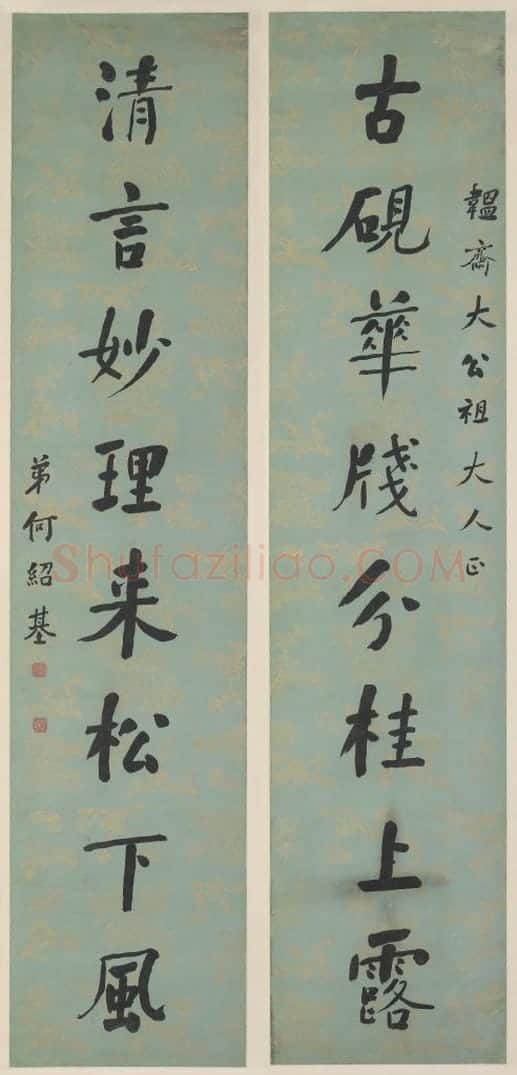 韞齋大公祖大人正
古硯華牋分桂上露
清言妙理来松下風
弟何紹基
Shufaziliao.COM